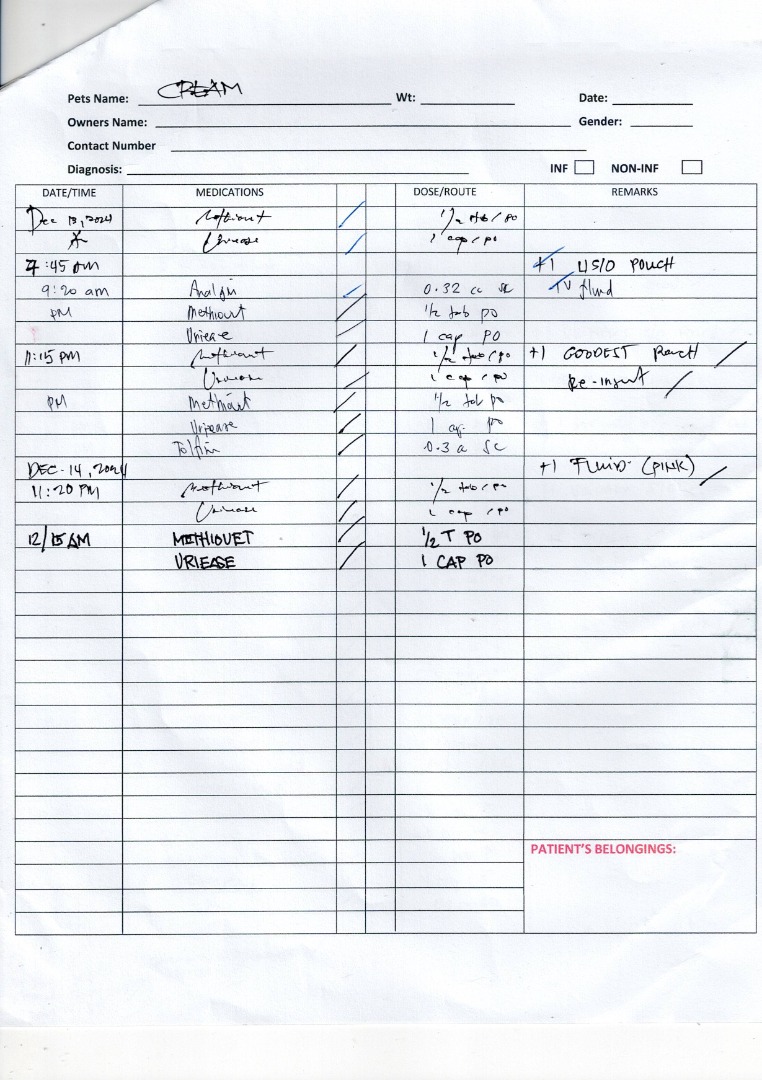 Pets Name: CREAM Wt: Date:
Owners Name: Gender:
Contact Number
Diagnosis: INF NON-INF
DATE/TIME MEDICATIONS DOSE/ROUTE REMARKS
Dec 13, 2024 1/2 tab / po
1 cap / po
7:45 AM +1 U/S/O POUCH
9:20 am 0.32 cc sc IV fluid
PM Methiovet 1/2 tab po
Uriease 1 cap PO
11:15 PM 1/2 tab / po +1 GOODEST Pouch
1 cap / po Re-insert
PM Methiovet 1/2 tab po
Uriease 1 cap po
Tolfin 0.3 cc sc
DEC-14, 2024 +1 FLUID (PINK)
11:20 PM 1/2 tab / po
1 cap / po
12/15 AM METHIOVET 1/2 T PO
URIEASE 1 CAP PO
PATIENT'S BELONGINGS: